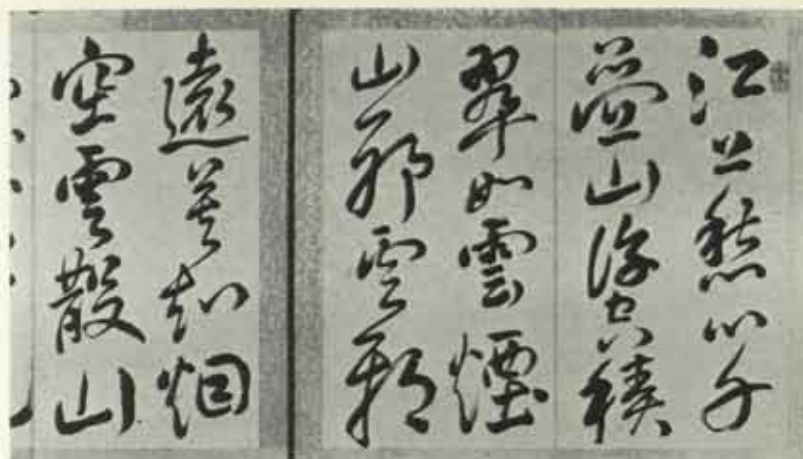 江上愁心千
疊山浮空積
翠如雲煙
山耶雲耶
遠莫知烟
空雲散山